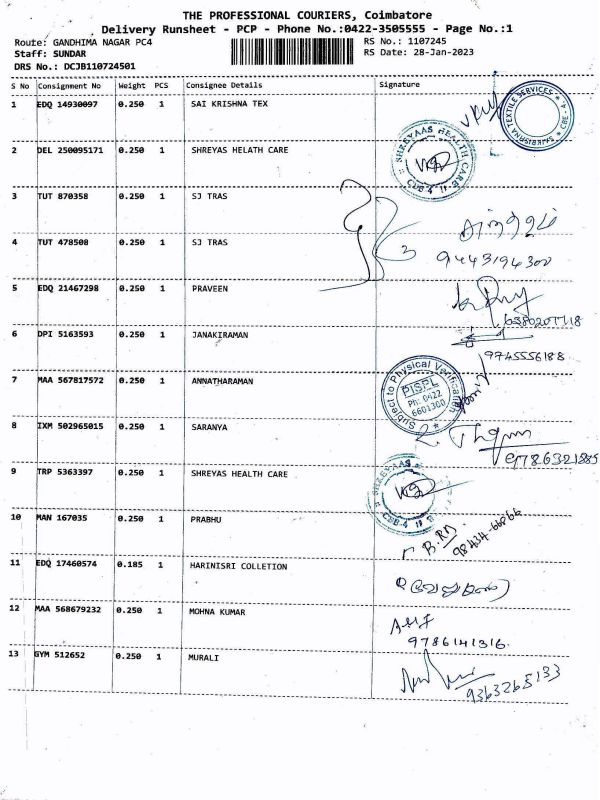 THE PROFESSIONAL COURIERS, Coimbatore
Delivery Runsheet - PCP - Phone No.:0422-3505555 - Page No.:1
Route: GANDHIMA NAGAR PC4 RS No.: 1107245
Staff: SUNDAR RS Date: 28-Jan-2023
DRS No.: DCJB110724501
S No Consignment No Weight PCS Consignee Details Signature
1 EDQ 14930097 0.250 1 SAI KRISHNA TEX
SAIKRISHNA TEXTILE SERVICES * CBE - 4. *
2 DEL 250095171 0.250 1 SHREYAS HELATH CARE
:: SHREYAAS HEALTH CARE :: CBE-4
3 TUT 870358 0.250 1 SJ TRAS
4 TUT 478508 0.250 1 SJ TRAS
9443194300
5 EDQ 21467298 0.250 1 PRAVEEN
6 DPI 5163593 0.250 1 JANAKIRAMAN
9745556188
7 MAA 567817572 0.250 1 ANNATHARAMAN
Subject to Physical Verification
PISPL
Ph: 0422
6601300
8 IXM 502965015 0.250 1 SARANYA
9786321985
9 TRP 5363397 0.250 1 SHREYAS HEALTH CARE
:: SHREYAAS CBE-4
10 MAN 167035 0.250 1 PRABHU
98434-66866
11 EDQ 17460574 0.185 1 HARINISRI COLLETION
12 MAA 568679232 0.250 1 MOHNA KUMAR
9786141316.
13 GYM 512652 0.250 1 MURALI
9363265133